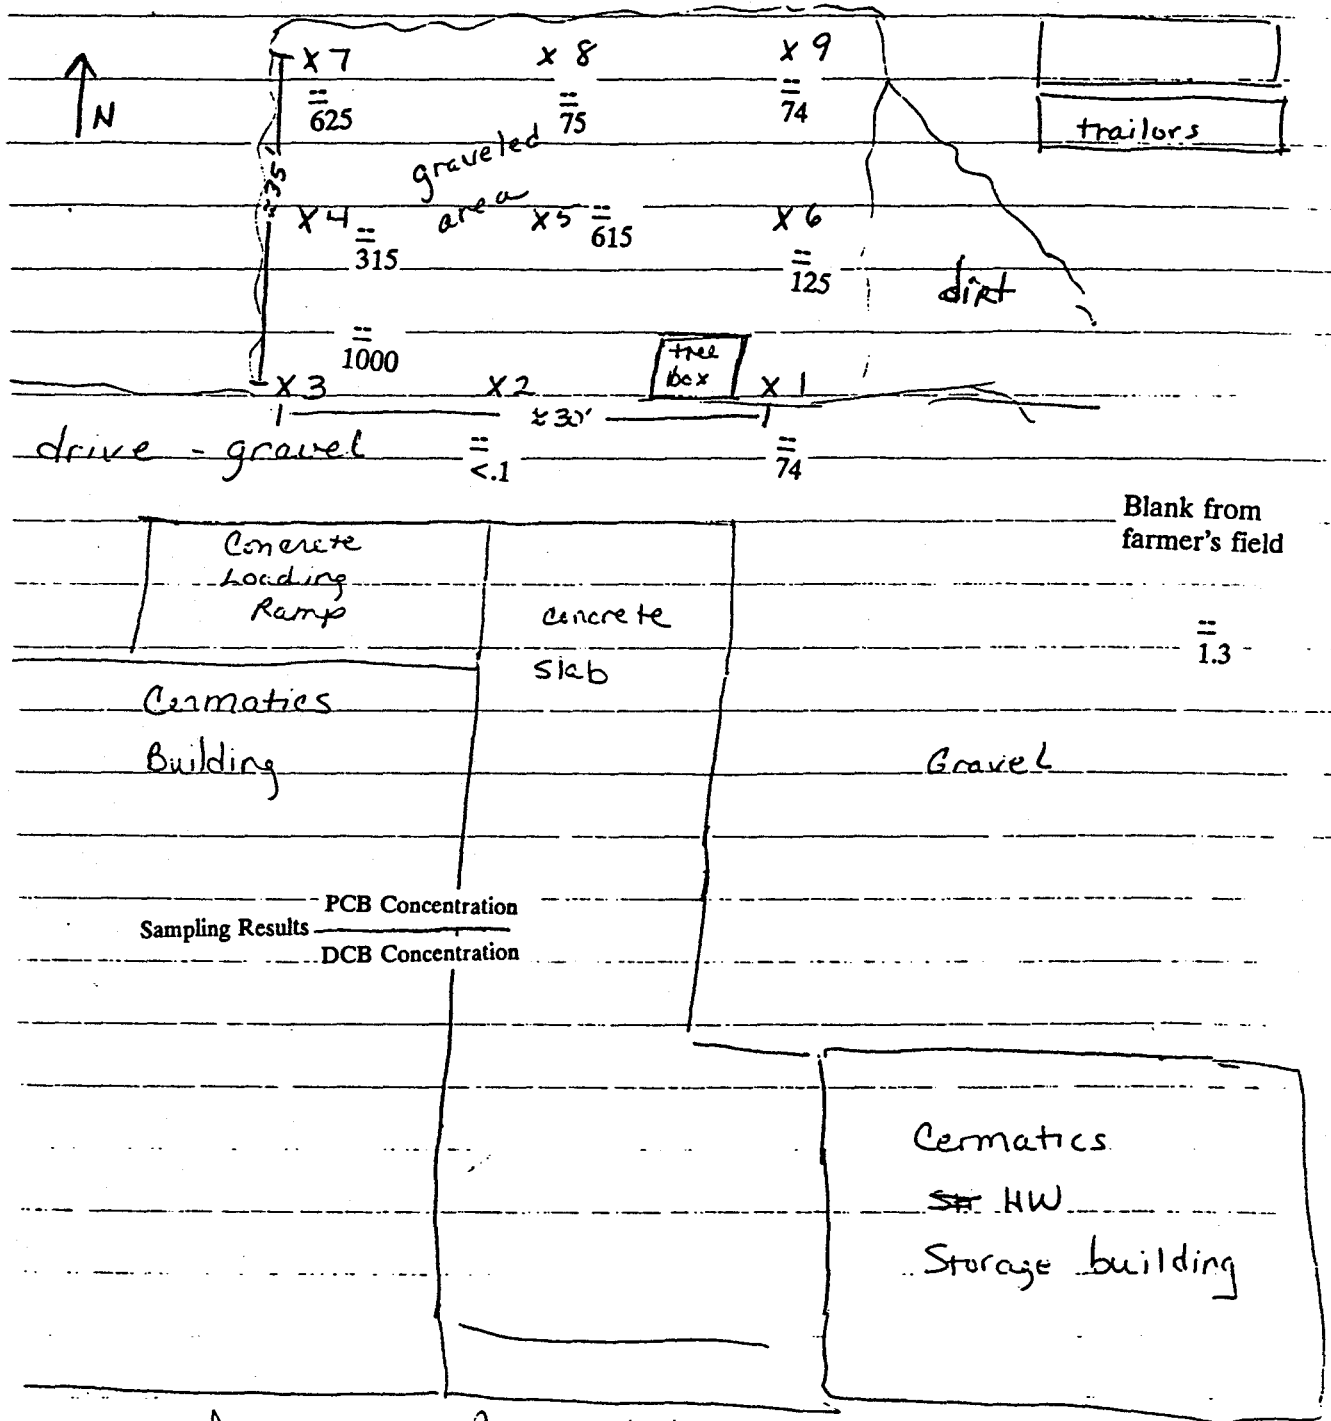 N
X 7
X 8
X 9
--
625
--
75
--
74
trailors
graveled
area
≈35'
X 4
--
315
X5
--
615
X 6
--
125
dirt
--
1000
tree
box
X 3
X 2
X 1
drive - gravel
--
<.1
--
74
Blank from
farmer's field
--
1.3
Concrete
Loading
Ramp
concrete
slab
Cermatics
Building
Gravel
Sampling Results
PCB Concentration
DCB Concentration
Cermatics
HW
Storage building